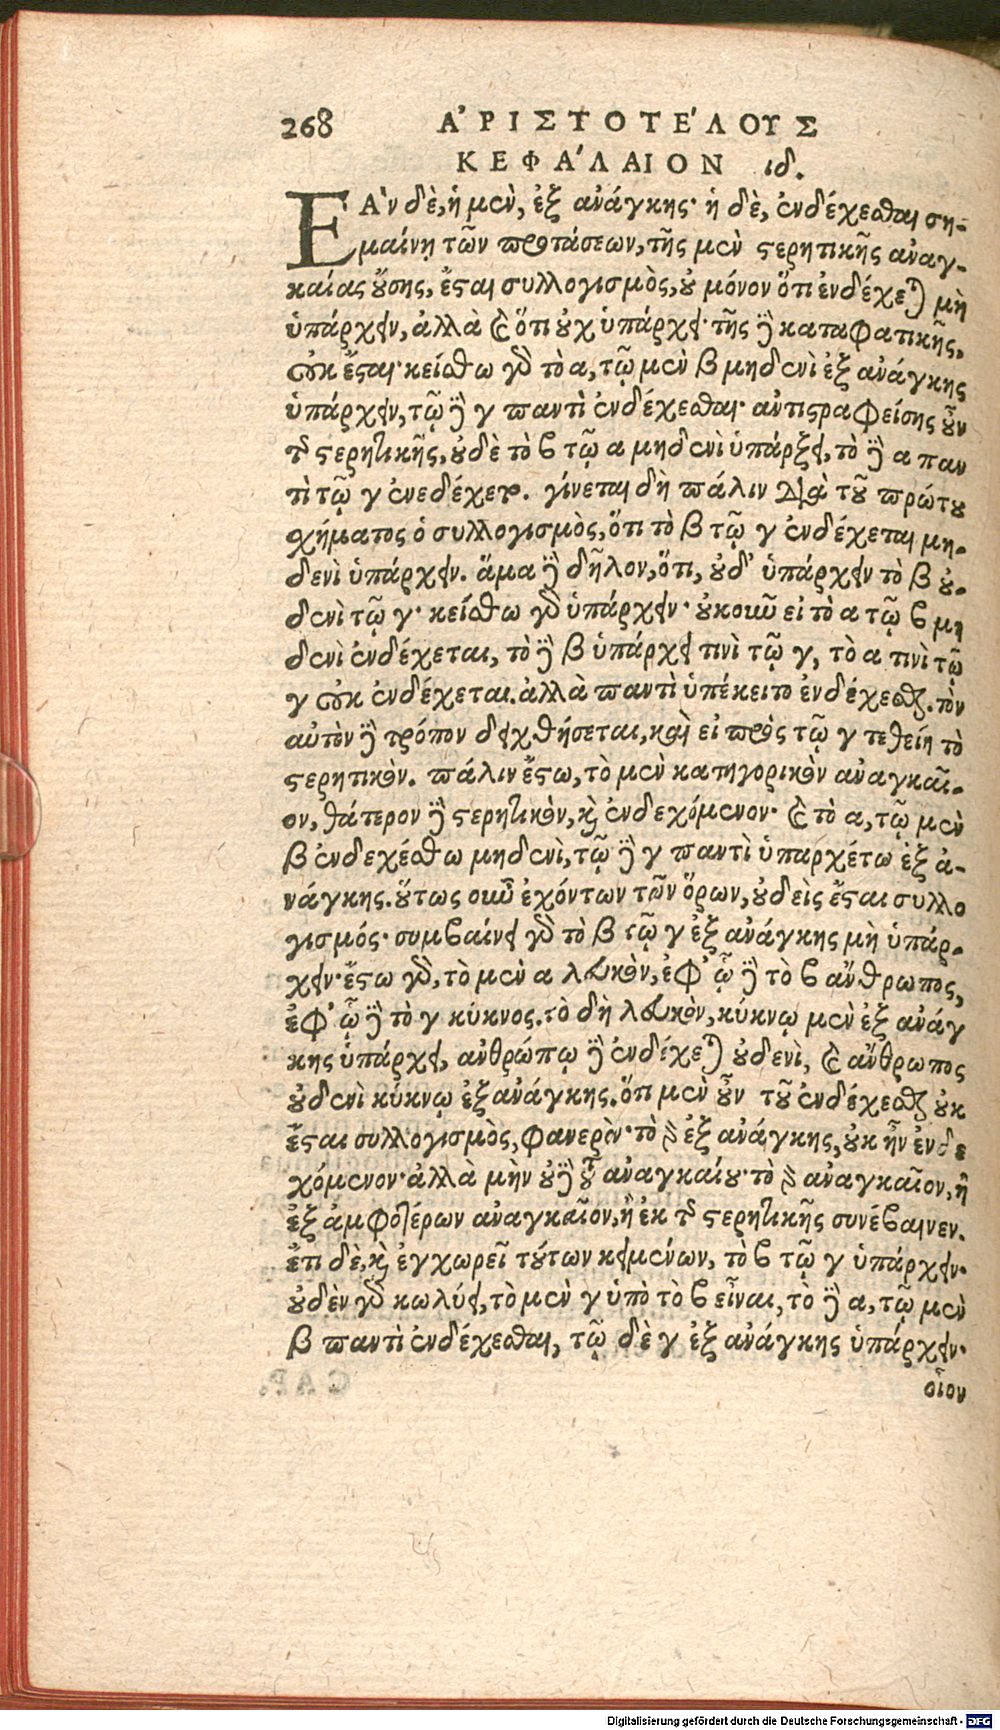 268 ἈΡΙΣΤΟΤΈΛΟΥΣ
ΚΕΦΆΛΑΙΟΝ ιδ.
ΕἊν δὲ, ἡ μὲν, ἐξ ἀνάγκης· ἡ δὲ, ἐνδέχεσθαι ση-
μαίνῃ τῶν προτάσεων, τῆς μὲν στερητικῆς ἀναγ-
καίας οὔσης, ἔσται συλλογισμὸς, οὐ μόνον ὅτι ἐνδέχεται μὴ
ὑπάρχειν, ἀλλὰ καὶ ὅτι οὐχ ὑπάρχει· τῆς δὲ καταφατικῆς,
οὐκ ἔσται· κείσθω γὰρ τὸ α, τῷ μὲν β μηδενὶ ἐξ ἀνάγκης
ὑπάρχειν, τῷ δὲ γ παντὶ ἐνδέχεσθαι· ἀντιστραφείσης οὖν
τῆς στερητικῆς, οὐδὲ τὸ β τῷ α μηδενὶ ὑπάρξει, τὸ δὲ α παν
τὶ τῷ γ ἐνεδέχετο. γίνεται δὴ πάλιν διὰ τοῦ πρώτου
σχήματος ὁ συλλογισμὸς, ὅτι τὸ β τῷ γ ἐνδέχεται μη-
δενὶ ὑπάρχειν. ἅμα δὲ δῆλον, ὅτι, οὐδ' ὑπάρχειν τὸ β οὐ-
δενὶ τῷ γ· κείσθω γὰρ ὑπάρχειν· οὐκοῦν εἰ τὸ α τῷ β μη
δενὶ ἐνδέχεται, τὸ δὲ β ὑπάρχει τινὶ τῷ γ, τὸ α τινὶ τῷ
γ οὐκ ἐνδέχεται. ἀλλὰ παντὶ ὑπέκειτο ἐνδέχεσθαι. τὸν
αὐτὸν δὲ τρόπον δειχθήσεται, καὶ εἰ πρὸς τῷ γ τεθείη τὸ
στερητικὸν. πάλιν ἔστω, τὸ μὲν κατηγορικὸν ἀναγκαῖ-
ον, θάτερον δὲ στερητικὸν, καὶ ἐνδεχόμενον· καὶ τὸ α, τῷ μὲν
β ἐνδεχέσθω μηδενὶ, τῷ δὲ γ παντὶ ὑπαρχέτω ἐξ ἀ-
νάγκης. οὕτως οὖν ἐχόντων τῶν ὅρων, οὐδεὶς ἔσται συλλο
γισμός· συμβαίνει γὰρ τὸ β τῷ γ ἐξ ἀνάγκης μὴ ὑπάρ-
χειν· ἔστω γὰρ, τὸ μὲν α λευκὸν, ἐφ' ᾧ δὲ τὸ β ἄνθρωπος,
ἐφ' ᾧ δὲ τὸ γ κύκνος. τὸ δὴ λευκὸν, κύκνῳ μὲν ἐξ ἀνάγ
κης ὑπάρχει, ἀνθρώπῳ δὲ ἐνδέχεται οὐδενὶ, καὶ ἄνθρωπος
οὐδενὶ κύκνῳ ἐξ ἀνάγκης. ὅτι μὲν οὖν τοῦ ἐνδέχεσθαι οὐκ
ἔσται συλλογισμὸς, φανερὸν· τὸ γὰρ ἐξ ἀνάγκης, οὐκ ἦν ἐνδε
χόμενον· ἀλλὰ μὴν οὐδὲ τοῦ ἀναγκαίου· τὸ γὰρ ἀναγκαῖον, ἢ
ἐξ ἀμφοτέρων ἀναγκαῖον, ἢ ἐκ τῆς στερητικῆς συνέβαινεν.
ἔτι δὲ, καὶ ἐγχωρεῖ τούτων κειμένων, τὸ β τῷ γ ὑπάρχειν·
οὐδὲν γὰρ κωλύει, τὸ μὲν γ ὑπὸ τὸ β εἶναι, τὸ δὲ α, τῷ μὲν
β παντὶ ἐνδέχεσθαι, τῷ δὲ γ ἐξ ἀνάγκης ὑπάρχειν·
οἷον
Digitalisierung gefördert durch die Deutsche Forschungsgemeinschaft - DFG